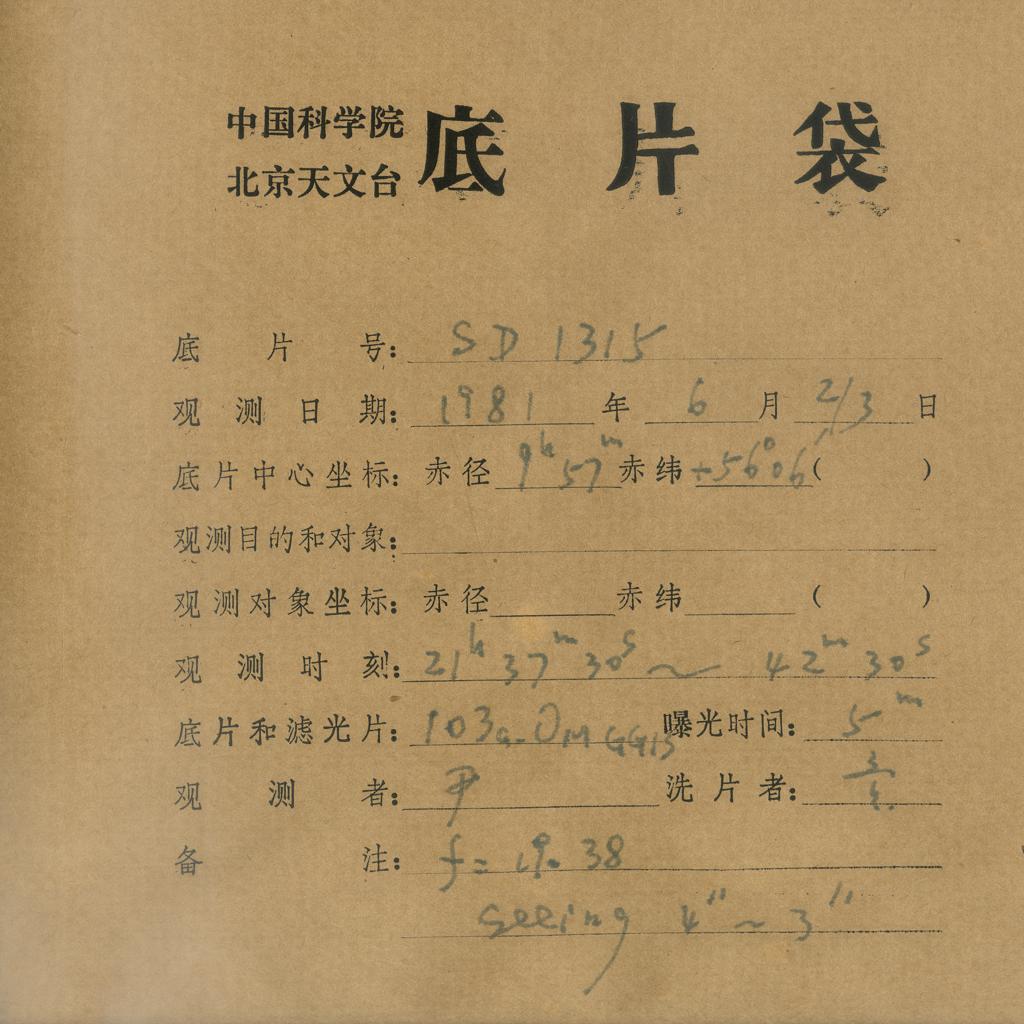 中国科学院
北京天文台 底片袋
底片号: SD 1315
观测日期: 1981 年 6 月 2/3 日
底片中心坐标: 赤径 9h 57m 赤纬 +56°06′ ( )
观测目的和对象:
观测对象坐标: 赤径 赤纬 ( )
观测时刻: 21h 37m 30s ~ 42m 30s
底片和滤光片: 103a-O M GG13 曝光时间: 5m
观测者: 尹 洗片者:
备注: f = 19.38
seeing 4″ ~ 3″